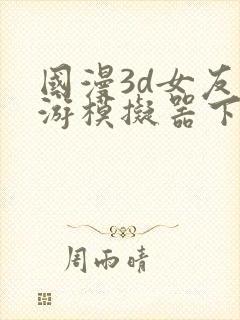 國漫3d女友
游模擬器下
周雨晴